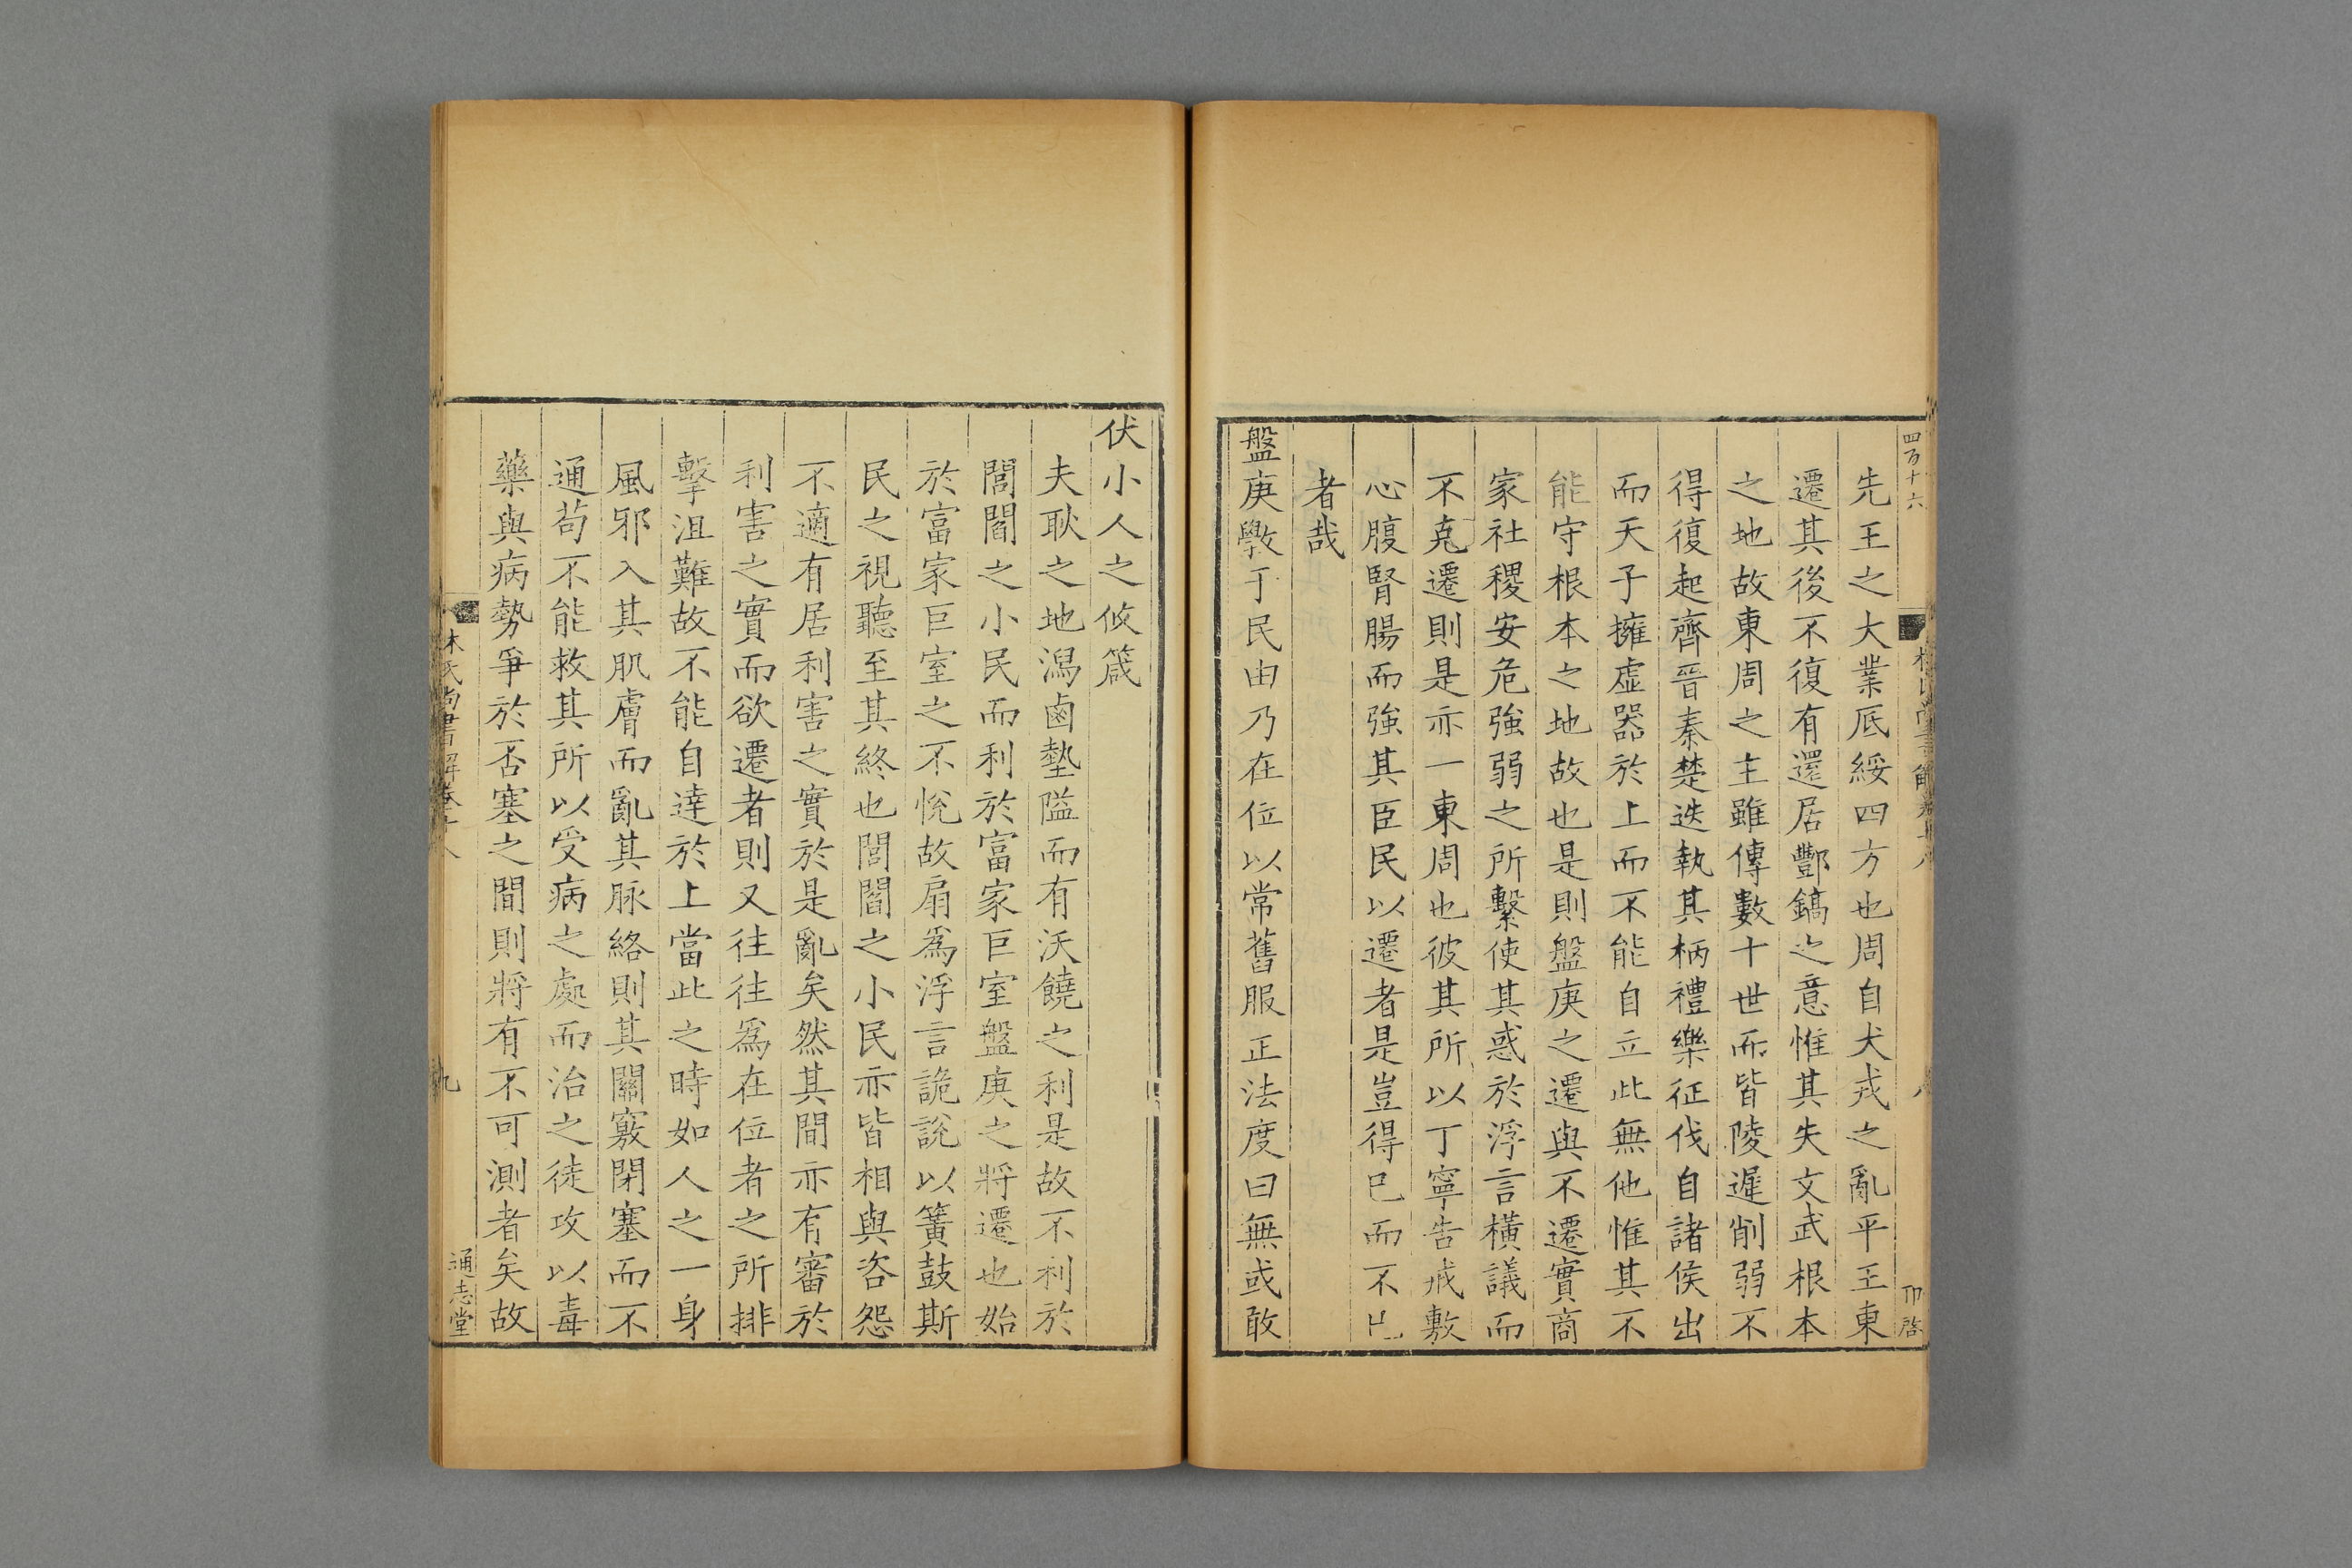 四百十六
先王之大業厎綏四方也周自犬戎之亂平王東
遷其後不復有還居酆鎬之意惟其失文武根本
之地故東周之主雖傳數十世而皆陵遲削弱不
得復起齊晉秦楚迭執其柄禮樂征伐自諸侯出
而天子擁虛器於上而不能自立此無他惟其不
能守根本之地故也是則盤庚之遷與不遷實商
家社稷安危強弱之所繫使其惑於浮言橫議而
不克遷則是亦一東周也彼其所以丁寧告戒敷
心腹腎腸而強其臣民以遷者是豈得已而不已
者哉
盤庚斆于民由乃在位以常舊服正法度曰無或敢
伏小人之攸箴
夫耿之地潟鹵墊隘而有沃饒之利是故不利於
閭閻之小民而利於富家巨室盤庚之將遷也始
於富家巨室之不悅故扇為浮言詭說以簧鼓斯
民之視聽至其終也閭閻之小民亦皆相與咨怨
不適有居利害之實於是亂矣然其間亦有審於
利害之實而欲遷者則又往往為在位者之所排
擊沮難故不能自達於上當此之時如人之一身
風邪入其肌膚而亂其脉絡則其關竅閉塞而不
通茍不能救其所以受病之處而治之徒攻以毒
藥與病勢爭於否塞之間則將有不可測者矣故
林氏尚書解卷十八
九
通志堂